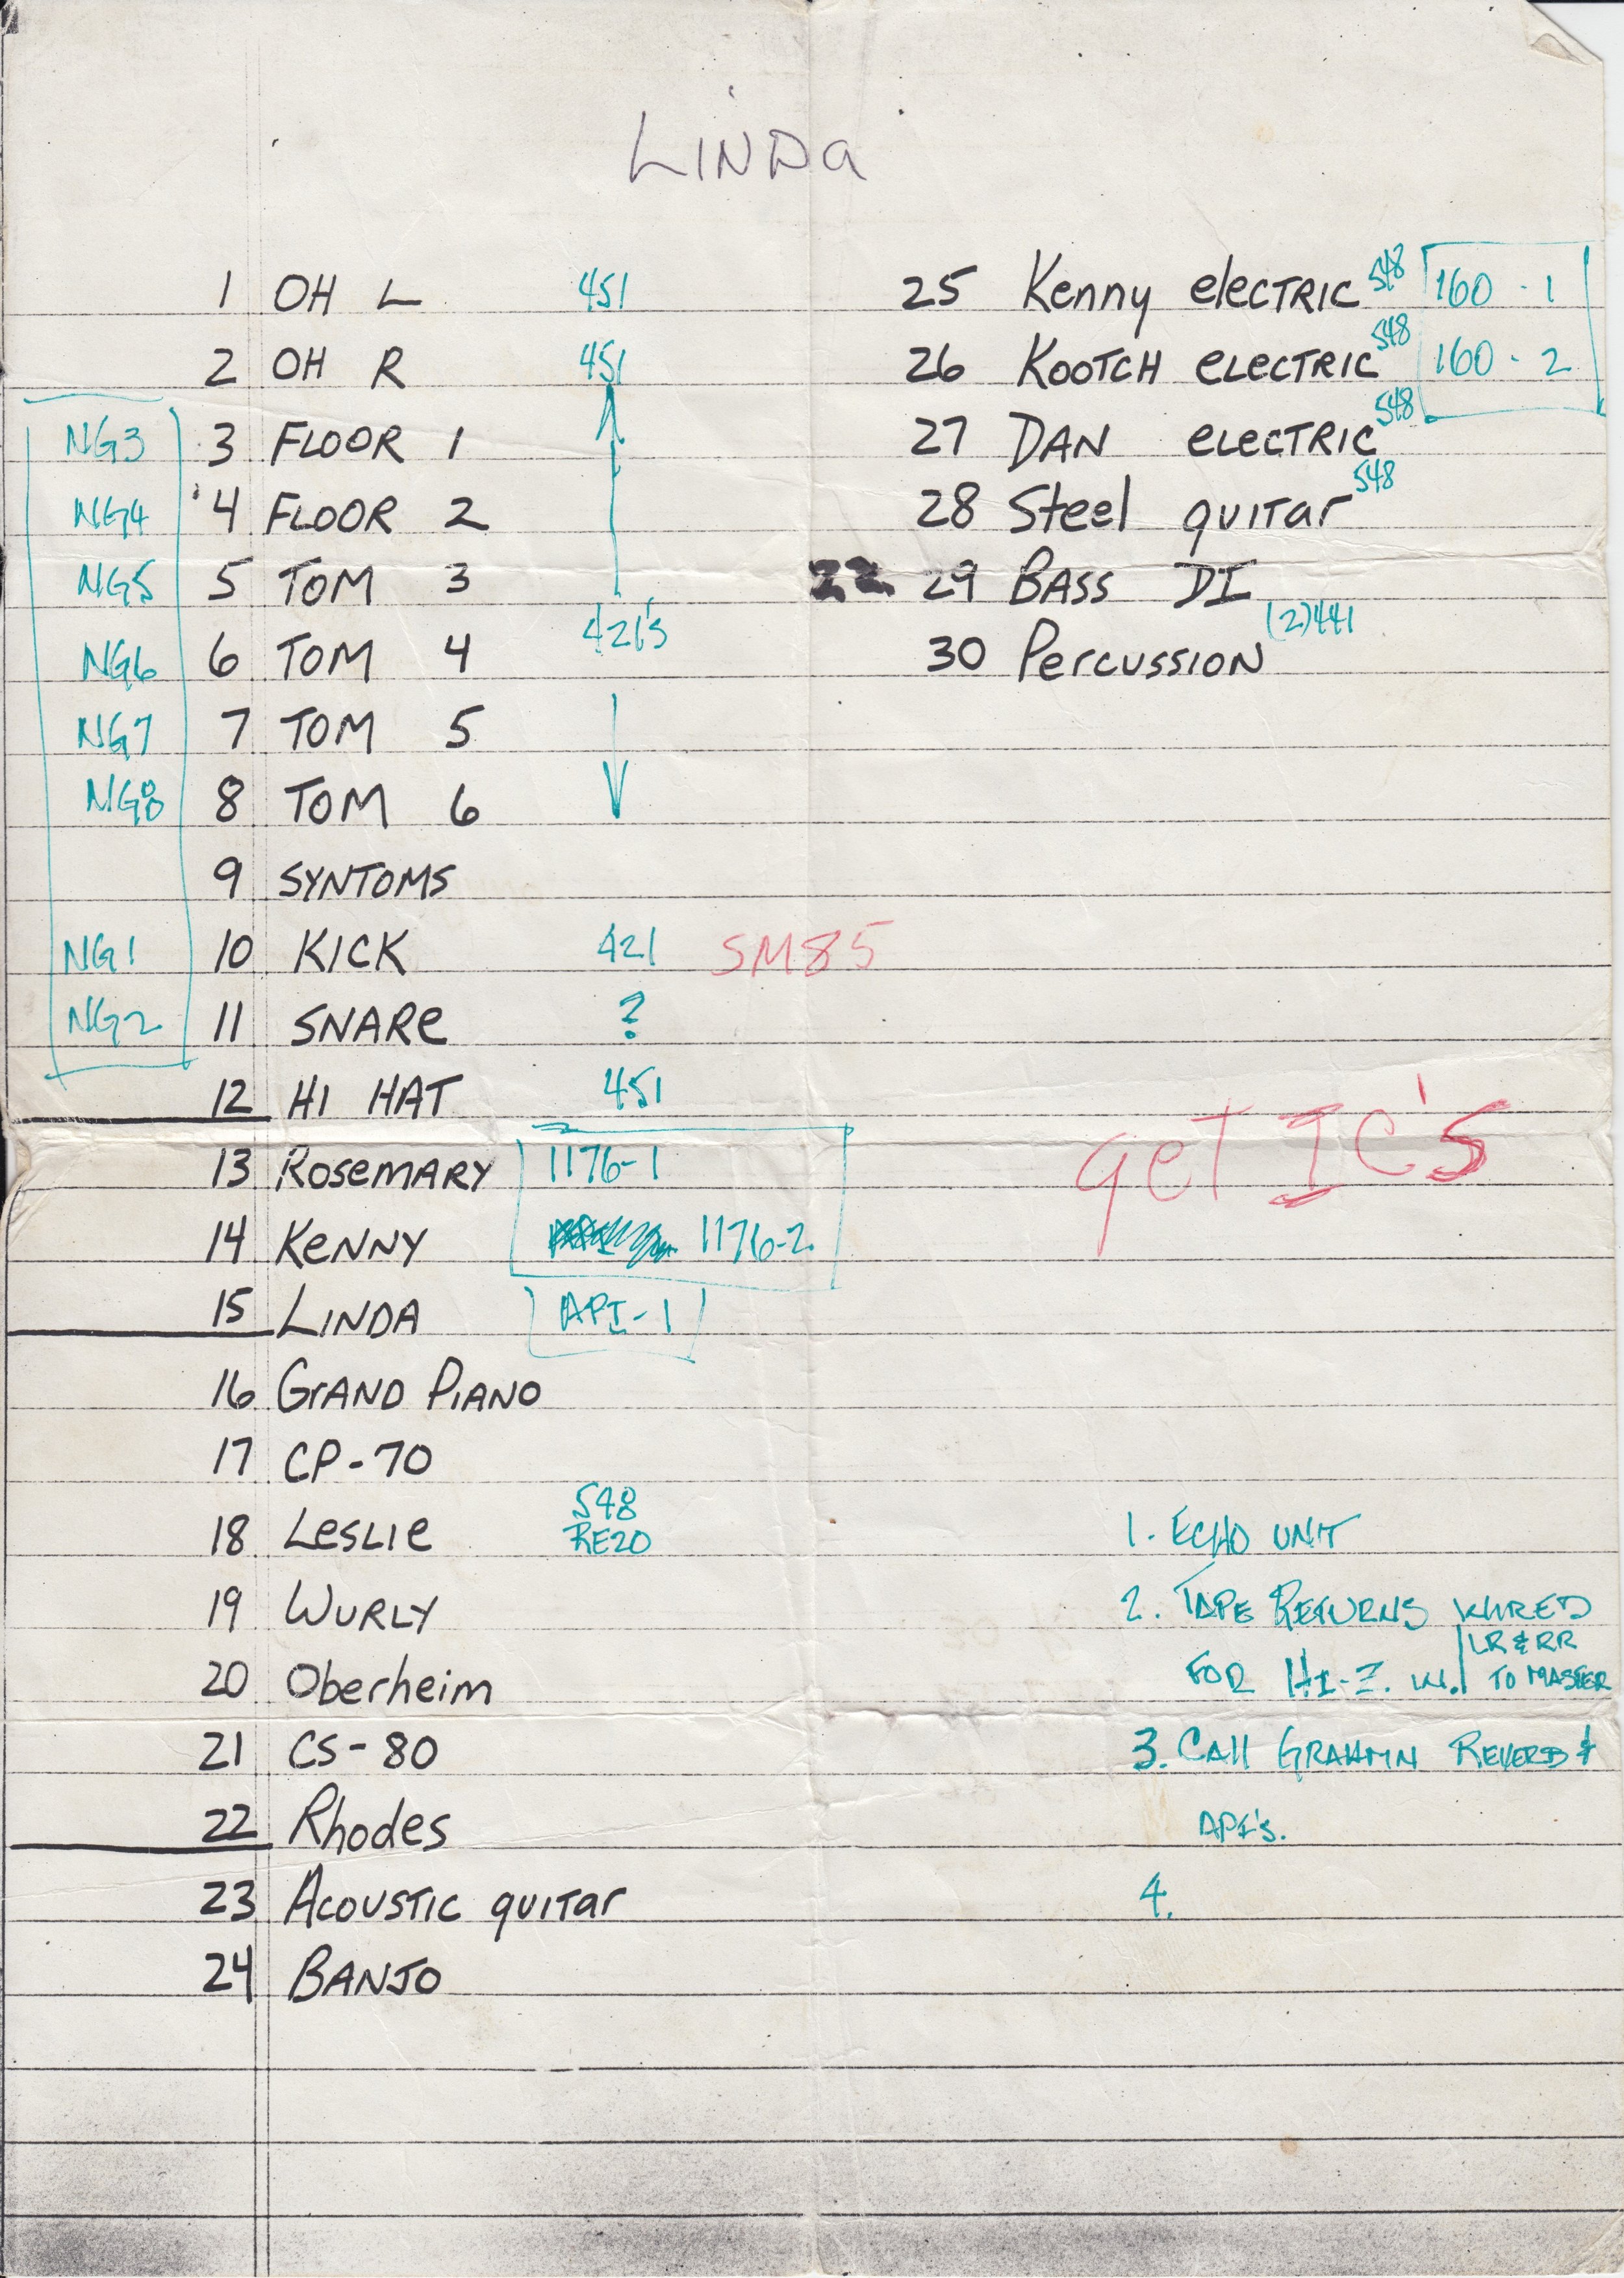 LINDa
1 OH L 451
2 OH R 451
NG3 3 FLOOR 1
NG4 4 FLOOR 2
NG5 5 TOM 3
421's
NG6 6 TOM 4
NG7 7 TOM 5
NG8 8 TOM 6
9 SYNTOMS
NG1 10 KICK 421 SM85
NG2 11 SNARe ?
12 HI HAT 451
13 RoseMARY 1176-1
14 KeNNY 1176-2
15 LINDA API-1
16 GrAND PIANO
17 CP-70
548
18 LesLIe RE20
19 WURLY
20 Oberheim
21 CS-80
22 Rhodes
23 ACOUSTIC guITar
24 BANJO
25 Kenny eleCTRIC 548 160 - 1
26 KOOTCH eLeCTRIC 548 160 - 2
27 DAN eLeCTRIC 548
28 Steel guITar 548
22 29 BASS DI
30 PercussION (2)441
geT IC'S
1. ECHO UNIT
2. TAPE RETURNS WIRED
FOR HI-Z. IN. LR & RR
TO MASTER
3. CAll GRAHMN REVERB &
API's.
4.